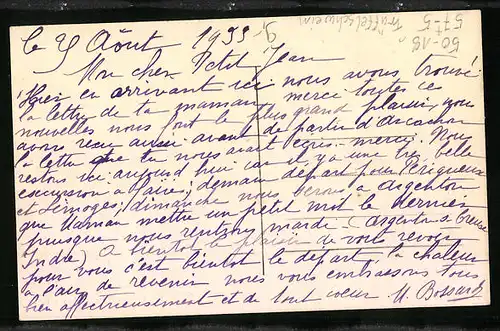 le 25 Août 1933
Mon cher Petit Jean
Hier en arrivant ici nous avons trouvé
la lettre de ta maman merci toutes ces
nouvelles nous font le plus grand plaisir, nous
avons reçu aussi avant de partir d'Arcachon
la lettre que tu nous avait écris - merci. Nous
restons ici aujourd'hui car il y a une très belle
excursion à faire; demain départ pour Périgueux
et Limoges; dimanche nous serons à Argenton
que maman mette un petit mot le dernier
puisque nous rentrons mardi - (Argenton s. Creuse
Indre) à bientôt le plaisir de vous revoir
pour vous c'est bientôt le départ, la chaleur
a l'air de revenir nous vous embrassons tous
bien affectueusement et de tout coeur M. Bossard
Trüffelschwein
50-18
57-5